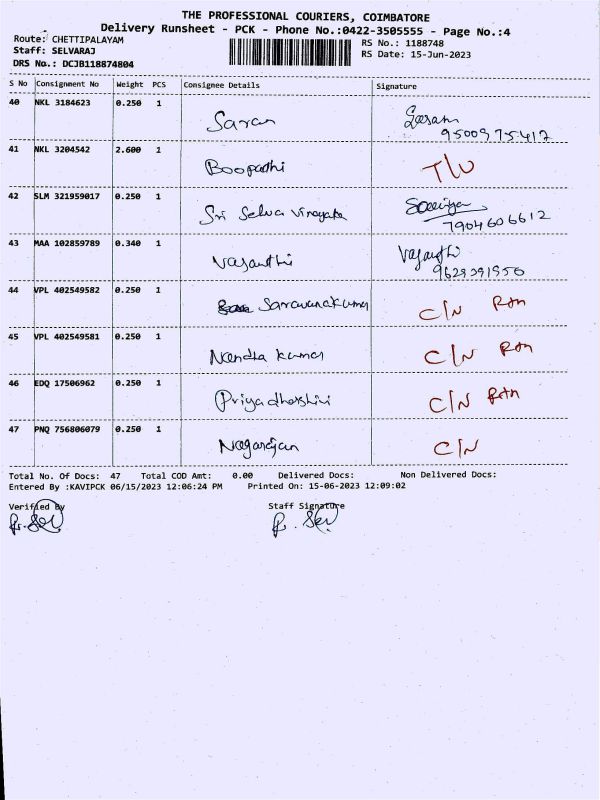 THE PROFESSIONAL COURIERS, COIMBATORE
Delivery Runsheet - PCK - Phone No.:0422-3505555 - Page No.:4
Route: CHETTIPALAYAM RS No.: 1188748
Staff: SELVARAJ RS Date: 15-Jun-2023
DRS No.: DCJB118874804
S No Consignment No Weight PCS Consignee Details Signature
40 NKL 3184623 0.250 1 Saran Saran
9500975417
41 NKL 3204542 2.600 1 Boopathi T/U
42 SLM 321959017 0.250 1 Sri Selva Vinayaka
7904606612
43 MAA 102859789 0.340 1 Vasanthi Vasanthi
9629391550
44 VPL 402549582 0.250 1 Saravanakumar C/N Rtn
45 VPL 402549581 0.250 1 Nandha kumar C/N Rtn
46 EDQ 17506962 0.250 1 Priyadharshini C/N Rtn
47 PNQ 756806079 0.250 1 Nagarajan C/N
Total No. Of Docs: 47 Total COD Amt: 0.00 Delivered Docs: Non Delivered Docs:
Entered By :KAVIPCK 06/15/2023 12:06:24 PM Printed On: 15-06-2023 12:09:02
Verified By Staff Signature